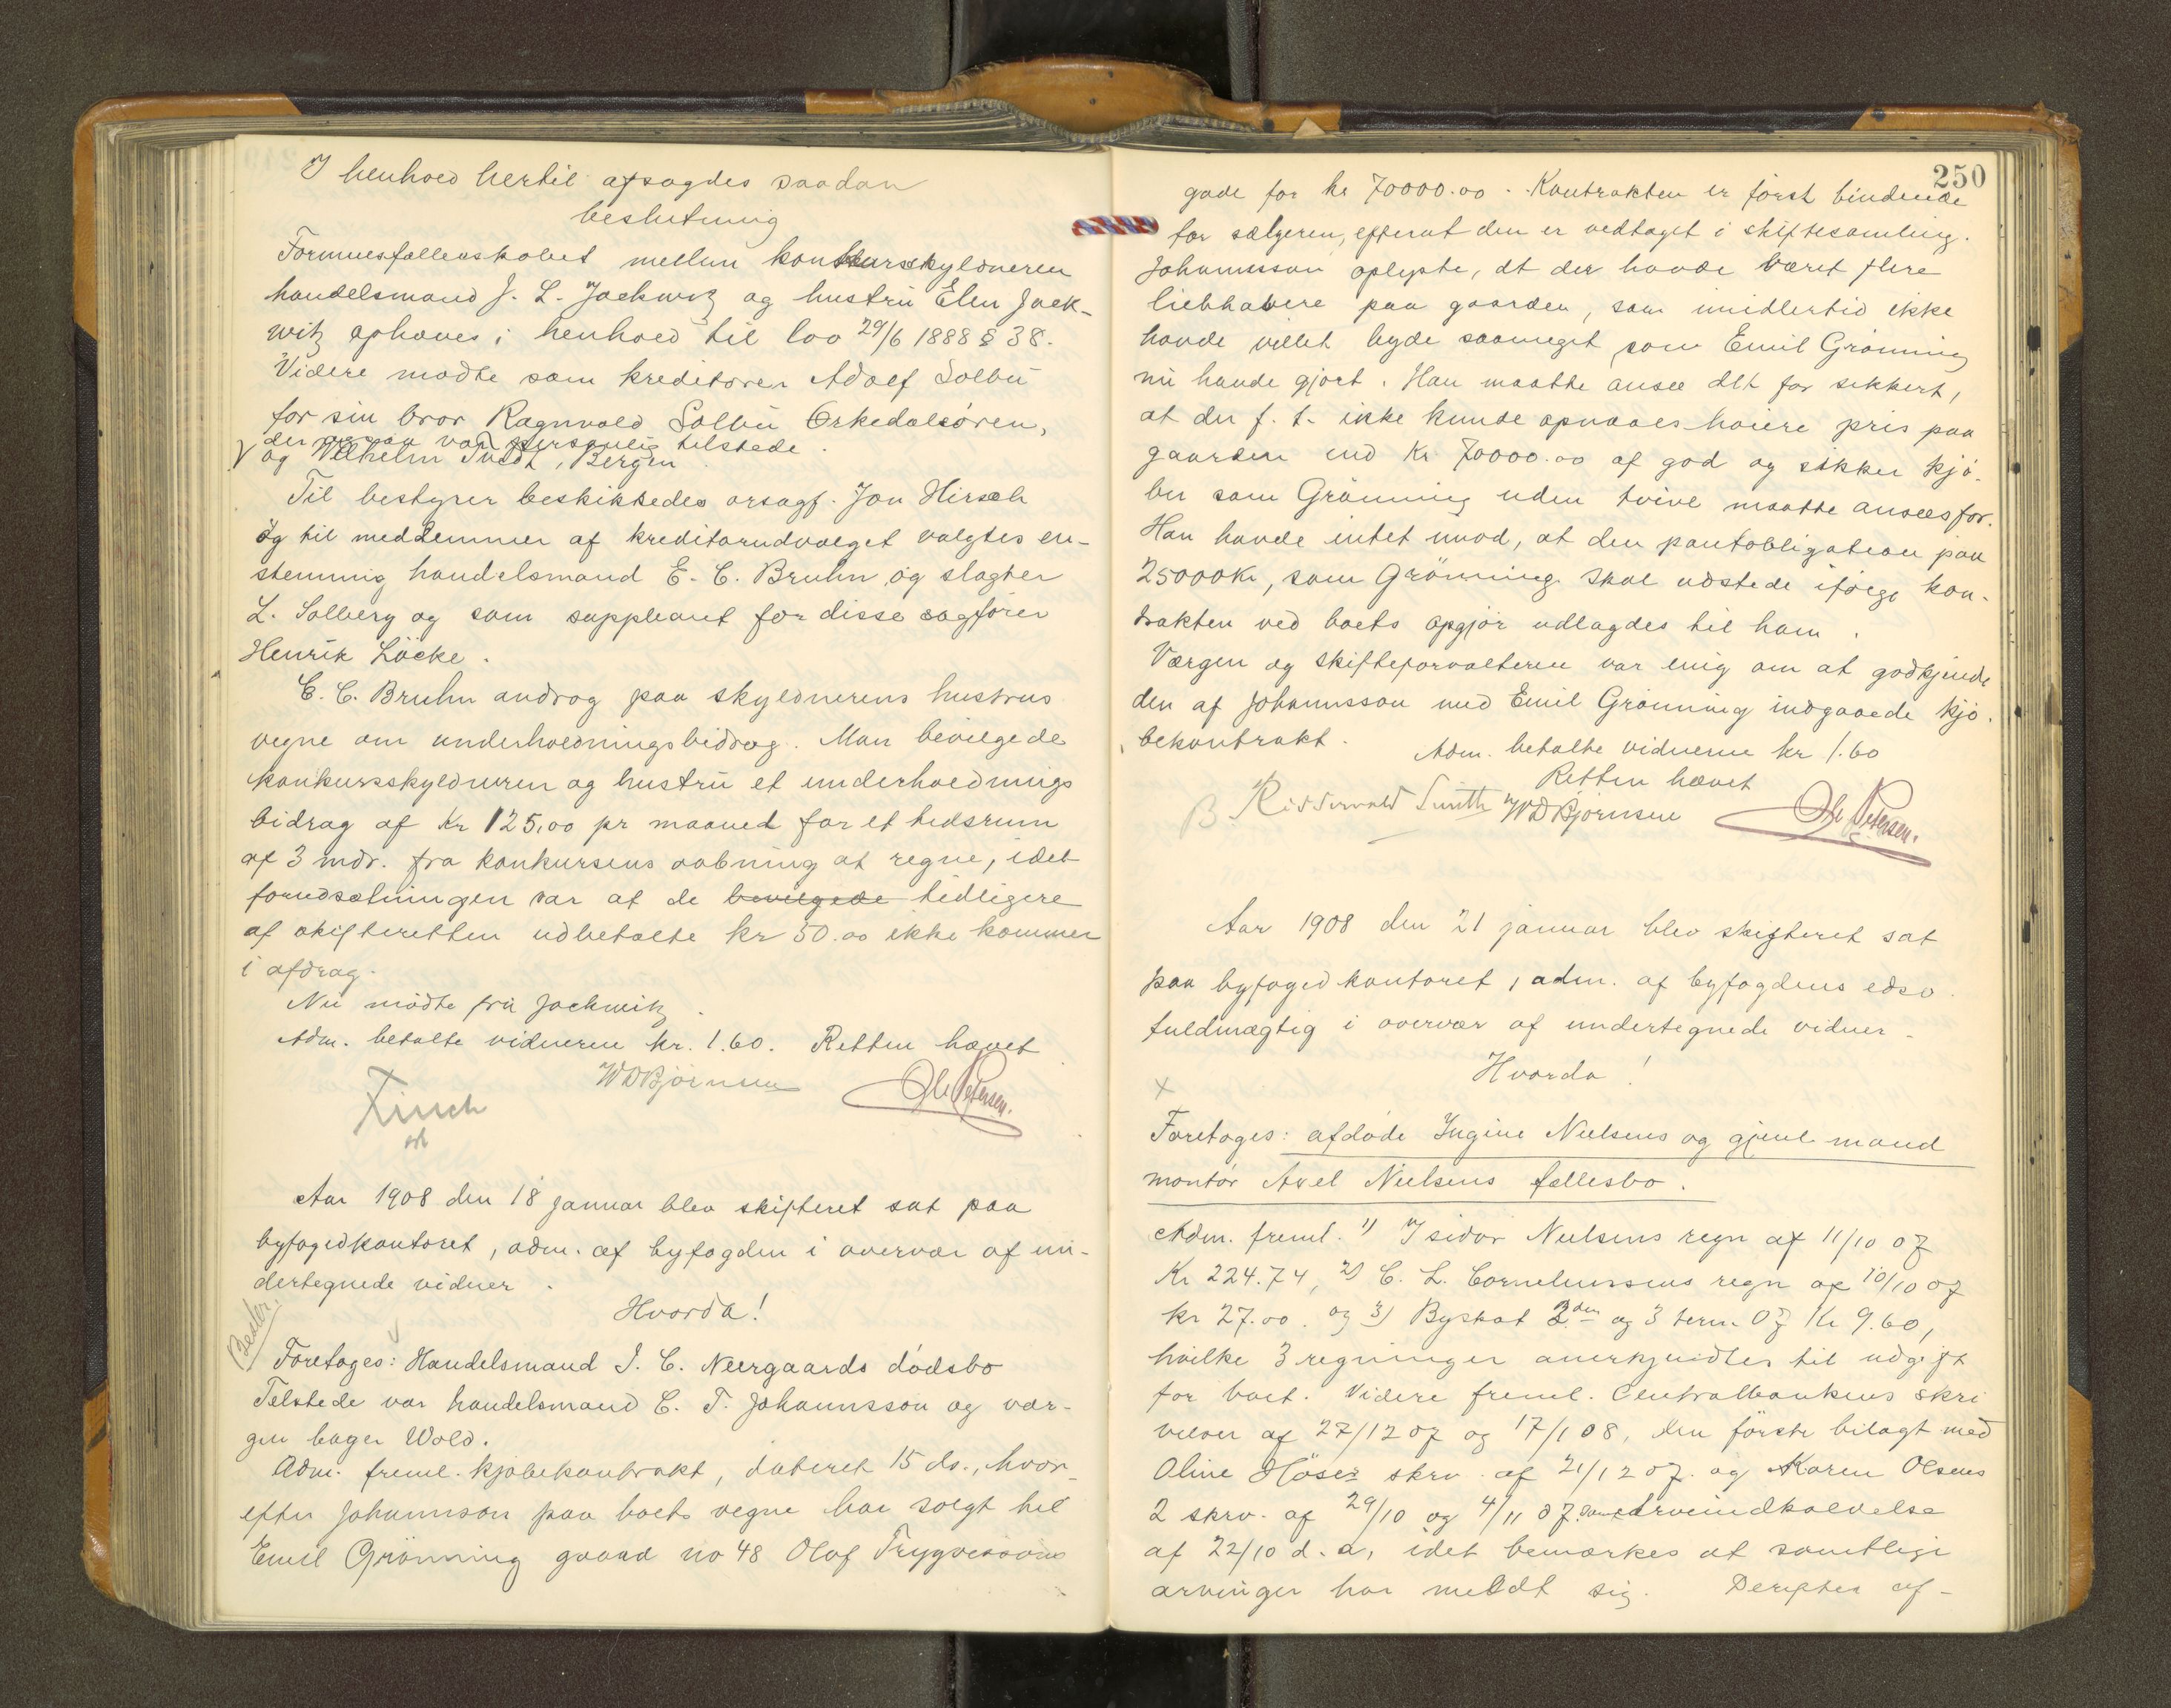 I henhold hertil afsagdes saadan
beslutning
Formuesfællesskabet mellem konkursskyldneren
handelsmand J. L. Jackwitz og hustru Elen Jack-
witz ophæves i henhold til lov 29/6 1888 § 38.
Videre mødte som kreditorer Adolf Solbu
for sin bror Ragnvald Solbu Orkedalsøren,
der ogsaa var personlig tilstede.
og Vilhelm Tvedt, Bergen
Til bestyrer beskikkedes orsagf. Jon Hirsch
og til medlemmer af kreditorudvalget valgtes en-
stemmig handelsmand E. C. Bruhn og slagter
L. Solberg og som suppleant for disse sagfører
Henrik Löcke.
E. C. Bruhn androg paa skyldnerens hustrus
vegne om underholdningsbidrag. Man bevilgede
konkursskyldneren og hustru et underholdnings
bidrag af Kr 125,00 pr maaned for et tidsrum
af 3 mdr. fra konkursens aabning at regne, idet
forudsætningen var at de bevilgede tidligere
af skifteretten udbetalte kr 50.00 ikke kommer
i afdrag.
Nu mødte fru Jackwitz.
Adm. betalte vidnerne kr. 1.60. Retten hævet
WDBjörnsen Ole Petersen.
Finch
Aar 1908 den 18 januar blev skifteret sat paa
byfogedkontoret, adm. af byfogden i overvær af un-
dertegnede vidner.
Hvorda!
Foretoges: Handelsmand J. C. Neergaards dödsbo
Tilstede var handelsmand C. F. Johannsson og vær-
gen bager Wold.
Adm. freml. kjøbekontrakt, dateret 15 ds., hvor-
efter Johannson paa boets vegne har solgt til
Emil Grönning gaard no 48 Olaf Trygvesöns
250
gade for kr 70000.00. Kontrakten er först bindende
for sælgeren, efterat den er vedtaget i skiftesamling.
Johannsson oplyste, at der havde været flere
liebhabere paa gaarden, som imidlertid ikke
havde villet byde saameget som Emil Grönning
nu havde gjort. Han maatte ansee det for sikkert,
at der f. t. ikke kunde opnaaes høiere pris paa
gaarden end Kr 70000.00 af god og sikker kjö-
ber som Grönning uden tvivl maatte ansees for.
Han havde intet imod, at den pantobligation paa
25000 Kr, som Grönning skal udstede ifølge kon-
trakten ved boets opgjör udlagdes til ham.
Værgen og skifteforvalteren var enig om at godkjende
den af Johannsson med Emil Grönning indgaaede kjö-
bekontrakt.
Adm. betalte vidnerne kr 1.60
Retten hævet
Ridderwold Smith WDBjörnsen Ole Petersen.
Aar 1908 den 21 januar blev skifteret sat
paa byfogedkontoret, adm. af byfogdens edsv.
fuldmægtig i overvær af undertegnede vidner.
Hvorda!
Foretoges: afdøde Ingine Nielsens og gjenl. mand
montør Axel Nielsens fællesbo.
Adm. freml. 1) Isidor Nielsens regn af 11/10 07
Kr 224.74, 2) C. L. Corneliussens regn af 10/10 07
kr 27.00. og 3) Byskat 2den og 3 term. 07 Kr 9.60,
hvilke 3 regninger anerkjendtes til udgift
for boet. Videre freml. Centralbankens skri
velser af 27/12 07 og 17/1 08, den förste bilagt med
Oline skrv. af 21/12 07. og Karen Olsens
2 skrv. af 29/10 og 4/11 07. samt Arveindkaldelse
af 22/10 d. a, idet bemærkes at samtlige
arvinger har meldt sig. Derefter af-